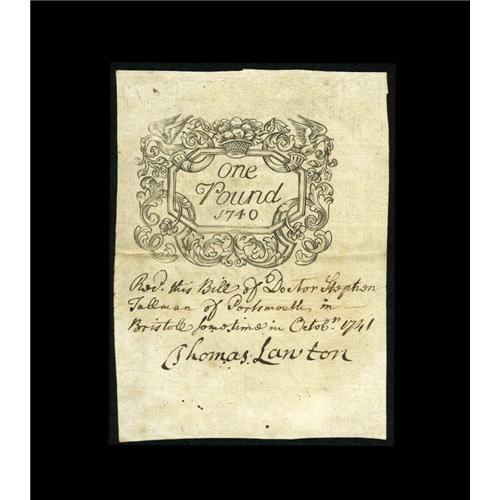 One
Pound
1740
Recd. this Bill of Doctor Stephen
Tallman of Portsmouth, in
Bristoll sometime in Octobr. 1741
Thomas Lawton